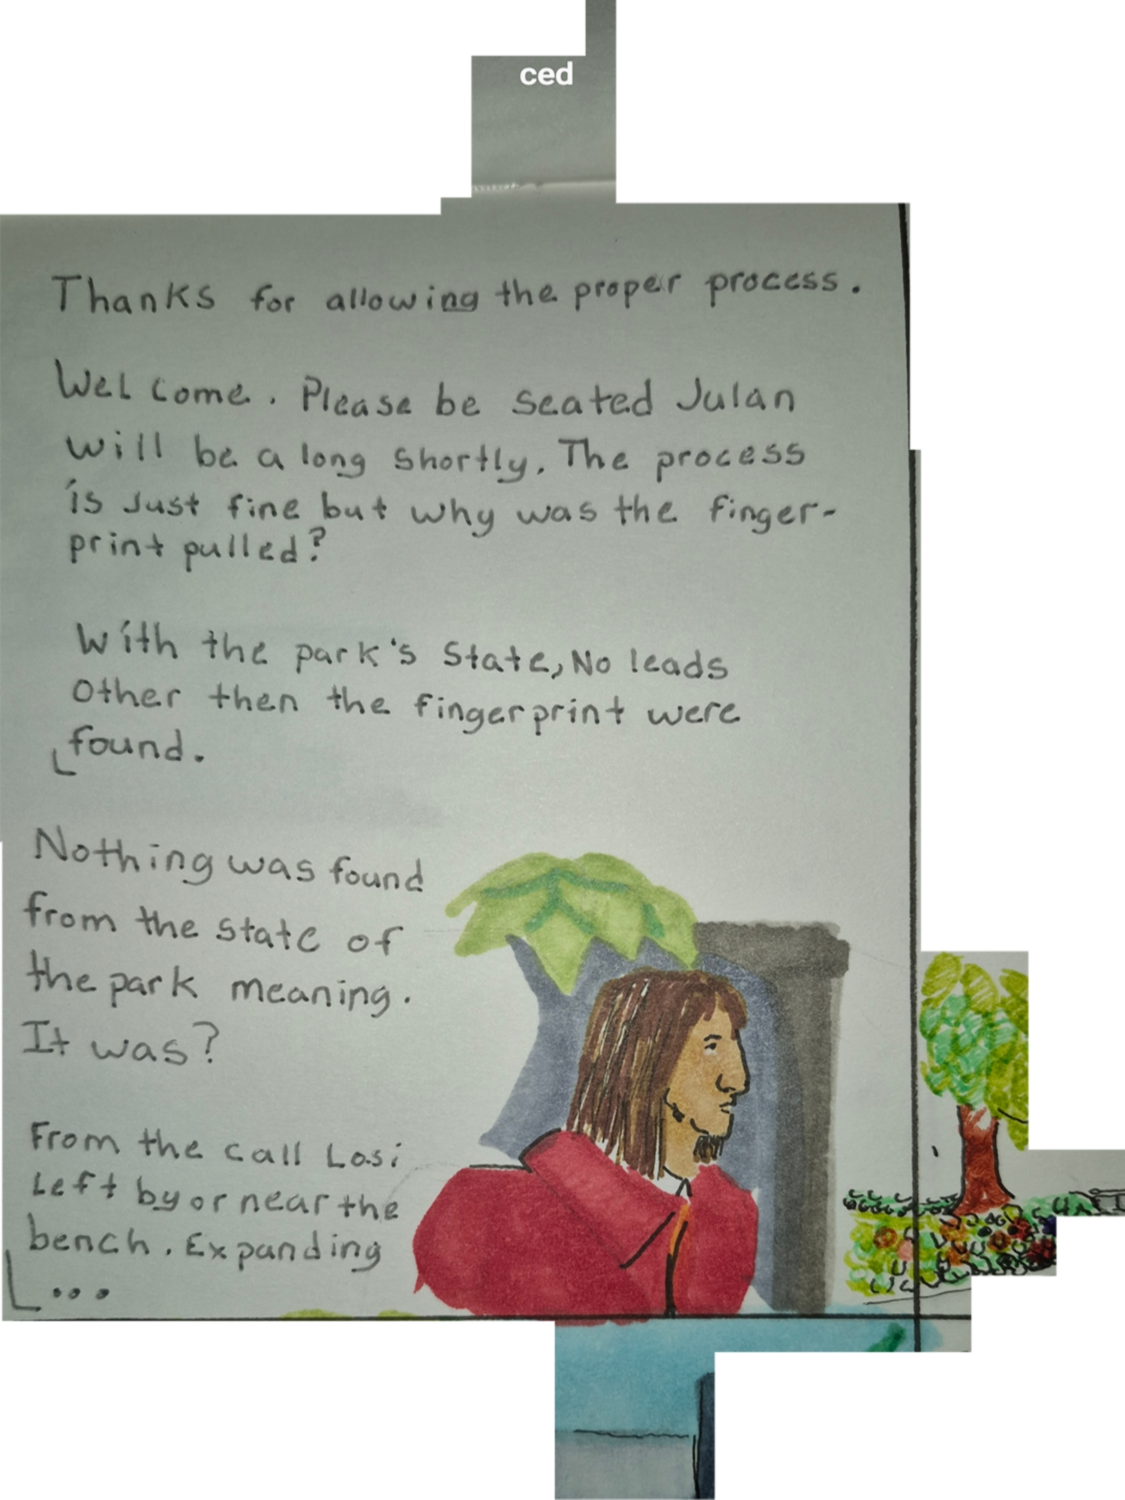 ced
Thanks for allowing the proper process.
Welcome. Please be seated Julan
will be a long shortly. The process
is Just fine but why was the finger-
print pulled?
With the park's State, No leads
other then the fingerprint were
found.
Nothing was found
from the state of
the park meaning.
It was?
From the call Losi
Left by or near the
bench. Expanding
...